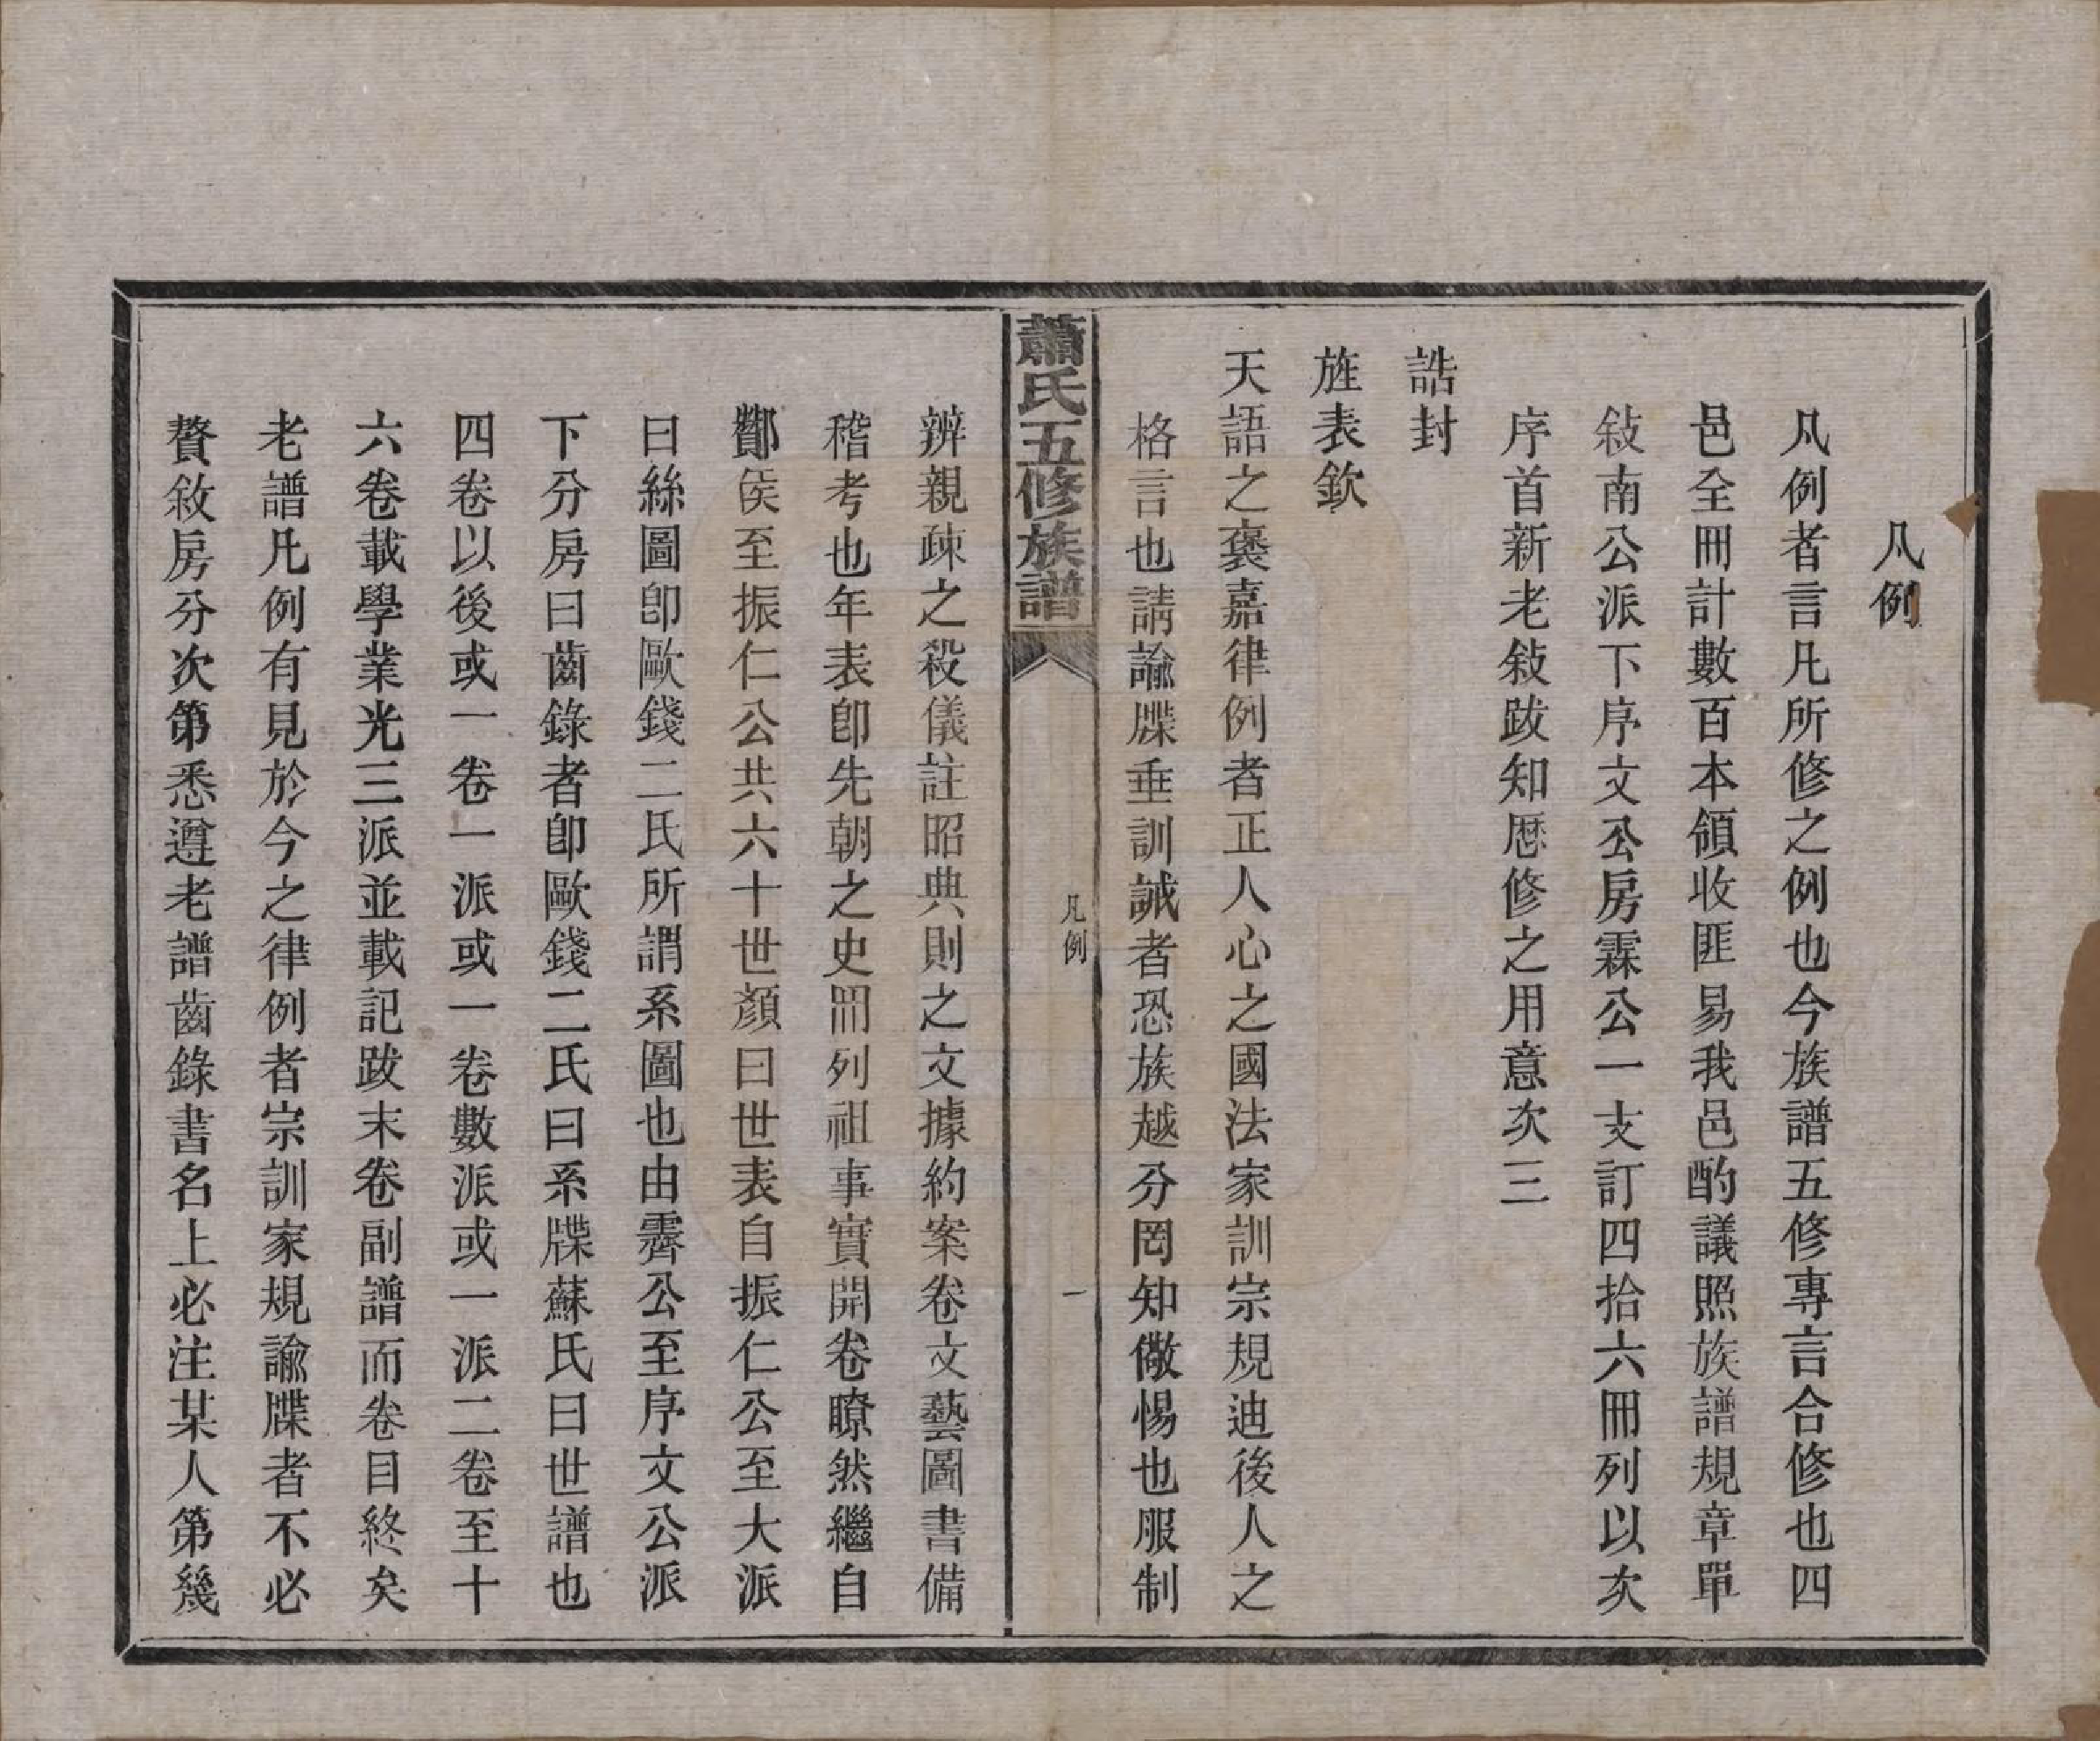 凡例
凡例者言凡所修之例也今族譜五修專言合修也四
邑全冊計數百本領收匪易我邑酌議照族譜規章單
敍南公派下序文公房霖公一支訂四拾六冊列以次
序首新老敍跋知厯修之用意次三
誥封
旌表欽
天語之褒嘉律例者正人心之國法家訓宗規迪後人之
格言也請諭牒垂訓誡者恐族越分罔知儆惕也服制
蕭氏五修族譜
凡例
一
辨親疎之殺儀註昭典則之文據約案卷文藝圖書備
稽考也年表卽先朝之史冊列祖事實開卷瞭然繼自
酇侯至振仁公共六十世顏曰世表自振仁公至大派
曰絲圖卽歐錢二氏所謂系圖也由霽公至序文公派
下分房曰齒錄者卽歐錢二氏曰系牒蘇氏曰世譜也
四卷以後或一卷一派或一卷數派或一派二卷至十
六卷載學業光三派並載記跋末卷副譜而卷目終矣
老譜凡例有見於今之律例者宗訓家規諭牒者不必
贅敘房分次第悉遵老譜齒錄書名上必注某人第幾